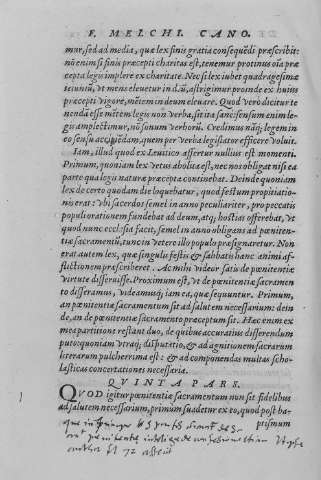 F. MELCHI. CANO.
mur, sed ad media, quæ lex finis gratia consequēdi præscribit:
nō enim si finis præcepti charitas est, tenemur protinus oīa præ
cepta legis implere ex charitate. Nec si lex iubet quadragesimæ
ieiuniū, vt mens eleuetur in deū, astringimur proinde ex huius
præcepti vigore, mētem in deum eleuare. Quod vero dicitur te
nendā esse mētem legis non verba, sit ita sanc: sensum enim le-
gis amplectimur, nō sonum verborū. Credimus nāq; legem in
eo sensu accipiēdam, quem per verba legislator efficere voluit.
Iam, illud quod ex Leuitico assertur nullius est momenti.
Primum, quoniam lex vetus abolita est, nec nos obligat nisi ea
parte qua legis naturæ præcepta continebat. Deinde quoniam
lex de certo quodam die loquebatur, quod festum propitiatio-
nis erat: vbi sacerdos semel in anno peculiariter, pro peccatis
populi orationem fundebat ad deum, atq; hostias offerebat, vt
quod nunc ecclesia facit, semel in anno obligans ad pœniten-
tiæ sacramentū, tunc in vetere illo populo præsignaretur. Non
erat autem lex, quæ singulis festis, & sabbatis hanc animi af-
flictionem præscriberet. Ac mihi videor satis de pœnitentiæ
virtute disseruisse. Proximum est, vt de pœnitentiæ sacramen
to disseramus, videamusq; iam ea, quæ sequuntur. Primum,
an pœnitentiæ sacramentum sit ad salutem necessarium: dein
de, an de pœnitentiæ sacramento præceptum sit. Hæc enim ex
mea partitione restant duo, de quibus accuratius disserendum
puto: quoniam vtraq; disputatio, & ad agnitionem sacrarum
literarum pulcherrima est: & ad componendas multas scho-
lasticas concertationes necessaria.
QVINTA PARS.
QVOD igitur pœnitentiæ sacramentum non sit fidelibus
ad salutem necessarium, primum suadetur ex eo, quod post ba-
ptismum